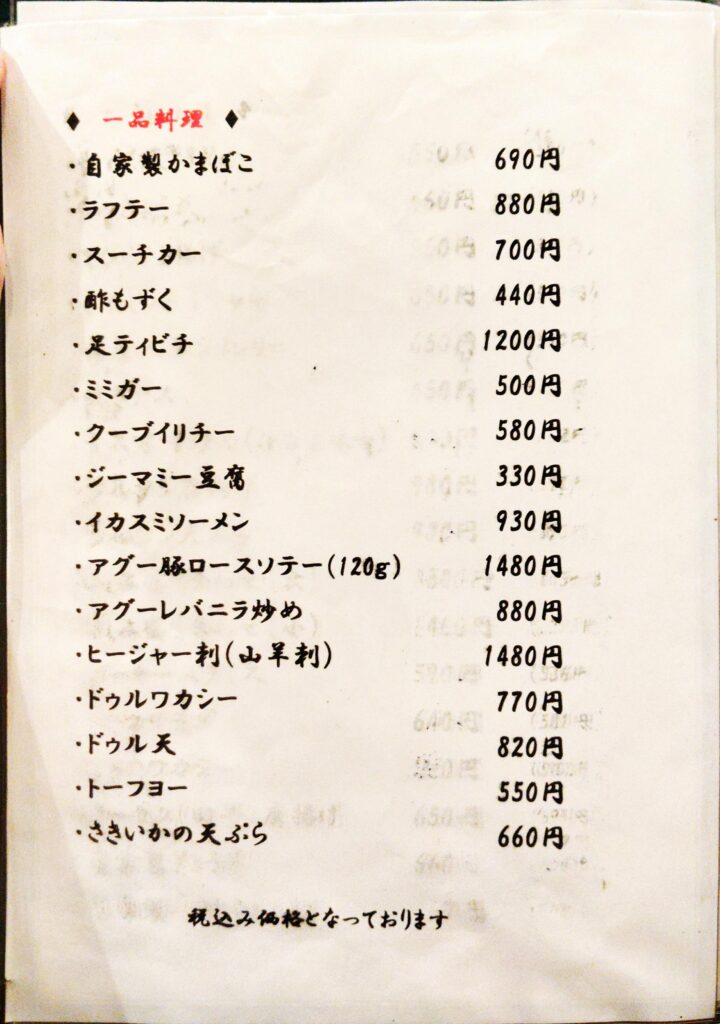 ◆ 一品料理 ◆
・自家製かまぼこ 690円
・ラフテー 880円
・スーチカー 700円
・酢もずく 440円
・足ティビチ 1200円
・ミミガー 500円
・クーブイリチー 580円
・ジーマミー豆腐 330円
・イカスミソーメン 930円
・アグー豚ロースソテー(120g) 1480円
・アグーレバニラ炒め 880円
・ヒージャー刺(山羊刺) 1480円
・ドゥルワカシー 770円
・ドゥル天 820円
・トーフヨー 550円
・さきいかの天ぷら 660円
税込み価格となっております